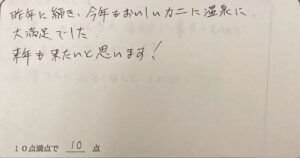 昨年に続き、今年もおいしいカニに温泉に、
大満足でした。
来年も来たいと思います！
10点満点で 10 点